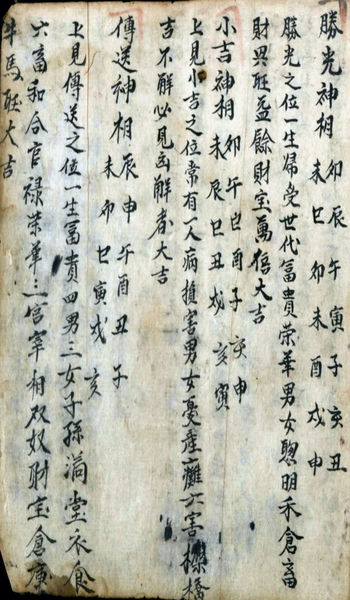 勝光神相 卯辰午寅子亥丑
未巳卯未酉戌申
勝光之位一生歸受世代冨貴荣華男女聦明禾倉畜
財興旺益餘財宝萬倍大吉
小吉神相 卯午巳酉子亥申
未辰巳丑戌亥寅
上見小吉之位常有一人病損害男女憂產灘六害橋
吉不解必見凶解者大吉
傳送神相 辰申午酉丑子
未卯巳寅戌亥
上見傳送之位一生冨貴四男三女子孫滿堂衣食
六畜和合官禄荣華三宫宰相双奴財宝倉庫
牛馬旺大吉